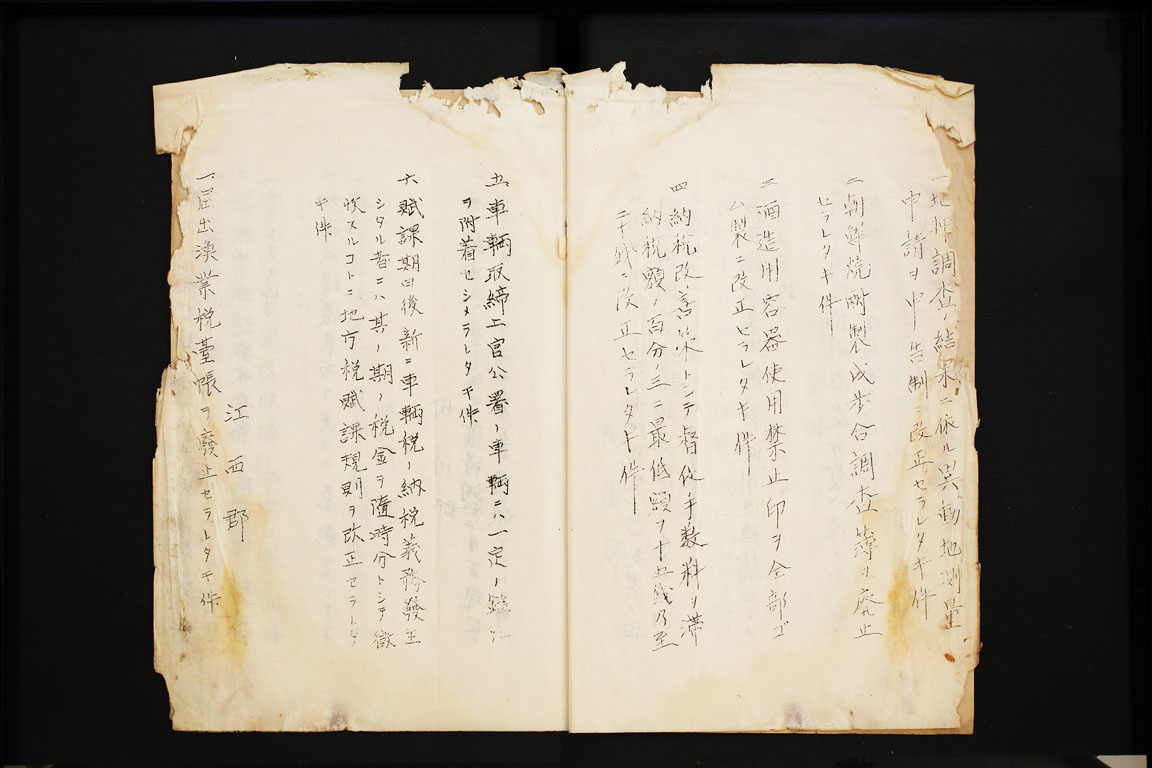 一、地押調査ノ結果ニ依ル異動地測量
申請ヲ申告制ニ改正セラレタキ件
二、朝鮮焼酎製成歩合調査簿ヲ廃止
セラレタキ件
三、酒造用容器使用禁止印ヲ全部ゴ
ム製ニ改正セラレタキ件
四、納税改善策トシテ督促手数料ヲ滞
納税額ノ百分ノ三ニ最低額ヲ十五銭乃至
二十銭ニ改正セラレタキ件
五、車輌取締上官公署ノ車輌ニハ一定ノ
ヲ附着セシメラレタキ件
六、賦課期日後新ニ車輌税ノ納税義務發生
シタル者ニハ其ノ期ノ税金ヲ随時分トシテ徴
收スルコトニ地方税賦課規則ヲ改正セラレタ
キ件
江西郡
一、屆出漁業税臺帳ヲ廢止セラレタキ件